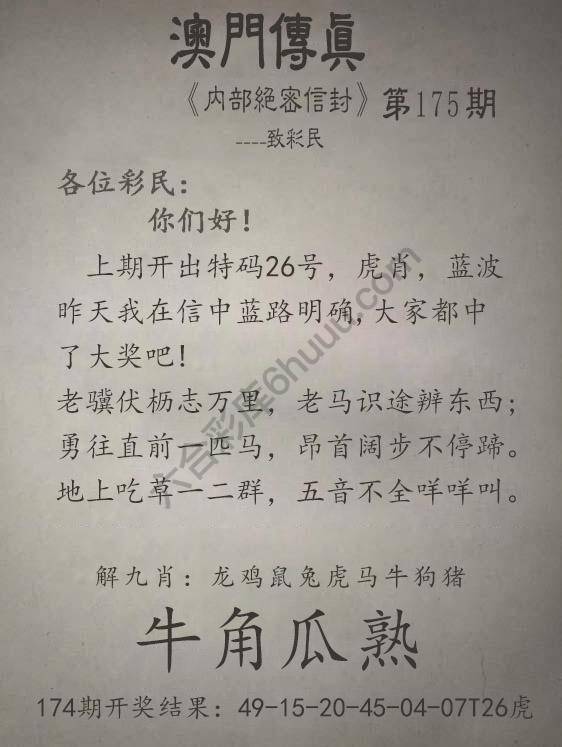 澳門傳真
《内部絕密信封》第175期
----致彩民
各位彩民：
你们好！
上期开出特码26号，虎肖，蓝波
昨天我在信中蓝路明确,大家都中
了大奖吧！
老骥伏枥志万里，老马识途辨东西；
勇往直前一匹马，昂首阔步不停蹄。
地上吃草一二群，五音不全咩咩叫。
六合彩库6huuu.com
解九肖：龙鸡鼠兔虎马牛狗猪
牛角瓜熟
174期开奖结果：49-15-20-45-04-07T26虎